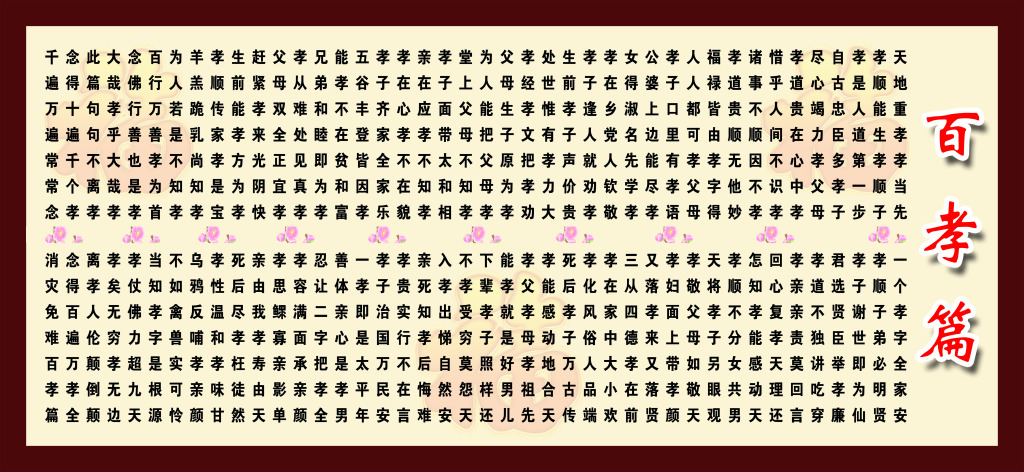 百孝篇
天地重孝孝当先
一个孝字全家安
孝顺能生孝顺子
孝顺子弟必明贤
孝是人道第一步
孝子谢世即为仙
自古忠臣多孝子
君选贤臣举孝廉
尽心竭力孝父母
孝道不独讲吃穿
孝道贵在心中孝
孝亲亲贵莫回言
惜乎人间不识孝
回心复孝天理还
诸事不顺因不孝
怎知孝能感动天
孝道贵顺无他妙
孝顺不分女共男
福禄皆由孝字得
天将孝子另眼观
人人都可孝父母
孝敬父母如敬天
孝子口里有孝语
孝妇面上带孝颜
公婆上边能尽孝
又落孝来又落贤
女得淑名先学孝
三从四德孝在前
孝在乡党人钦敬
孝在家中大小欢
孝子逢人就劝孝
孝化风俗人品端
生前孝子声价贵
死后孝子万古传
处世惟有孝力大
孝能感动地合天
孝经孝文把孝劝
孝父孝母孝祖先
父母生子原为孝
能孝就是好男儿
为人能把父母孝
下辈孝子照样还
堂上父母不知孝
不孝受穷莫怨天
孝子面带太和相
入孝出悌自然安
亲在应孝不知孝
亲死知孝后悔难
孝在心孝不在貌
孝贵实行不在言
孝子齐家全家乐
孝子治国万民安
五谷丰登皆因孝
一孝即是太平年
能孝不在贫和富
善体亲心是孝男
兄弟和睦即为孝
忍让二字把孝全
孝从难处见真孝
孝容满面承亲颜
父母双全正宜孝
孝思鳏寡亲影单
赶紧孝来光阴快
亲由我孝寿由天
生前能孝方为孝
死后尽孝枉徒然
孝顺传家孝是宝
孝性温和孝味甘
羊羔跪乳尚知孝
乌鸦反哺孝亲颜
为人若是不知孝
不如禽兽实可怜
百行万善孝为首
当知孝字是根源
念佛行善也是孝
孝仗佛力超九天
大哉孝乎大哉孝
孝矣无穷孝无边
此篇句句不离孝
离孝人伦颠倒颠
念得十遍千个孝
念得百遍万孝全
千遍万遍常常念
消灾免难百孝篇